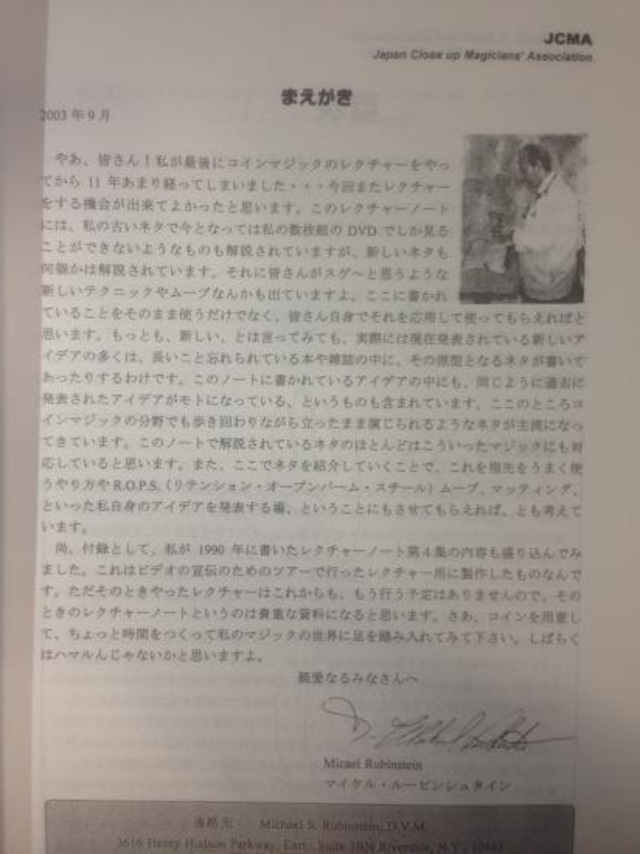 JCMA
Japan Close up Magicians' Association
まえがき
2003 年 9 月
やあ、皆さん！私が最後にコインマジックのレクチャーをやっ
てから 11 年あまり経ってしまいました・・・今回またレクチャー
をする機会が出来てよかったと思います。このレクチャーノート
には、私の古いネタで今となっては私の数枚組の DVD でしか見る
ことができないようなものも解説されていますが、新しいネタも
何個かは解説されています。それに皆さんがスゲ～と思うような
新しいテクニックやムーブなんかも出ていますよ。ここに書かれ
ていることをそのまま使うだけでなく、皆さん自身でそれを応用して使ってもらえればと
思います。もっとも、新しい、とは言ってみても、実際には現在発表されている新しいア
イデアの多くは、長いこと忘れられている本や雑誌の中に、その原型となるネタが書いて
あったりするわけです。このノートに書かれているアイデアの中にも、同じように過去に
発表されたアイデアがモトになっている、というものも含まれています。ここのところコ
インマジックの分野でも歩き回りながら立ったまま演じられるようなネタが主流になっ
てきています。このノートで解説されているネタのほとんどはこういったマジックにも対
応していると思います。また、ここでネタを紹介していくことで、これを指先をうまく使
うやり方や R.O.P.S.（リテンション・オープンパーム・スチール）ムーブ、マッティング、
といった私自身のアイデアを発表する場、ということにもさせてもらえれば、とも考えて
います。
尚、付録として、私が 1990 年に書いたレクチャーノート第４集の内容も盛り込んでみ
ました。これはビデオの宣伝のためのツアーで行ったレクチャー用に製作したものなんで
す。ただそのときやったレクチャーはこれからも、もう行う予定はありませんので、その
ときのレクチャーノートというのは貴重な資料になると思います。さあ、コインを用意し
て、ちょっと時間をつくって私のマジックの世界に足を踏み入れてみて下さい。しばらく
はハマルんじゃないかと思いますよ。
親愛なるみなさんへ
Micael Rubinstein
マイケル・ルービンシュタイン
連絡先： Michael S. Rubinstein, D.V.M.
3616 Henry Hudson Parkway, East. Suite 1BN Riverdale, N.Y., 10463